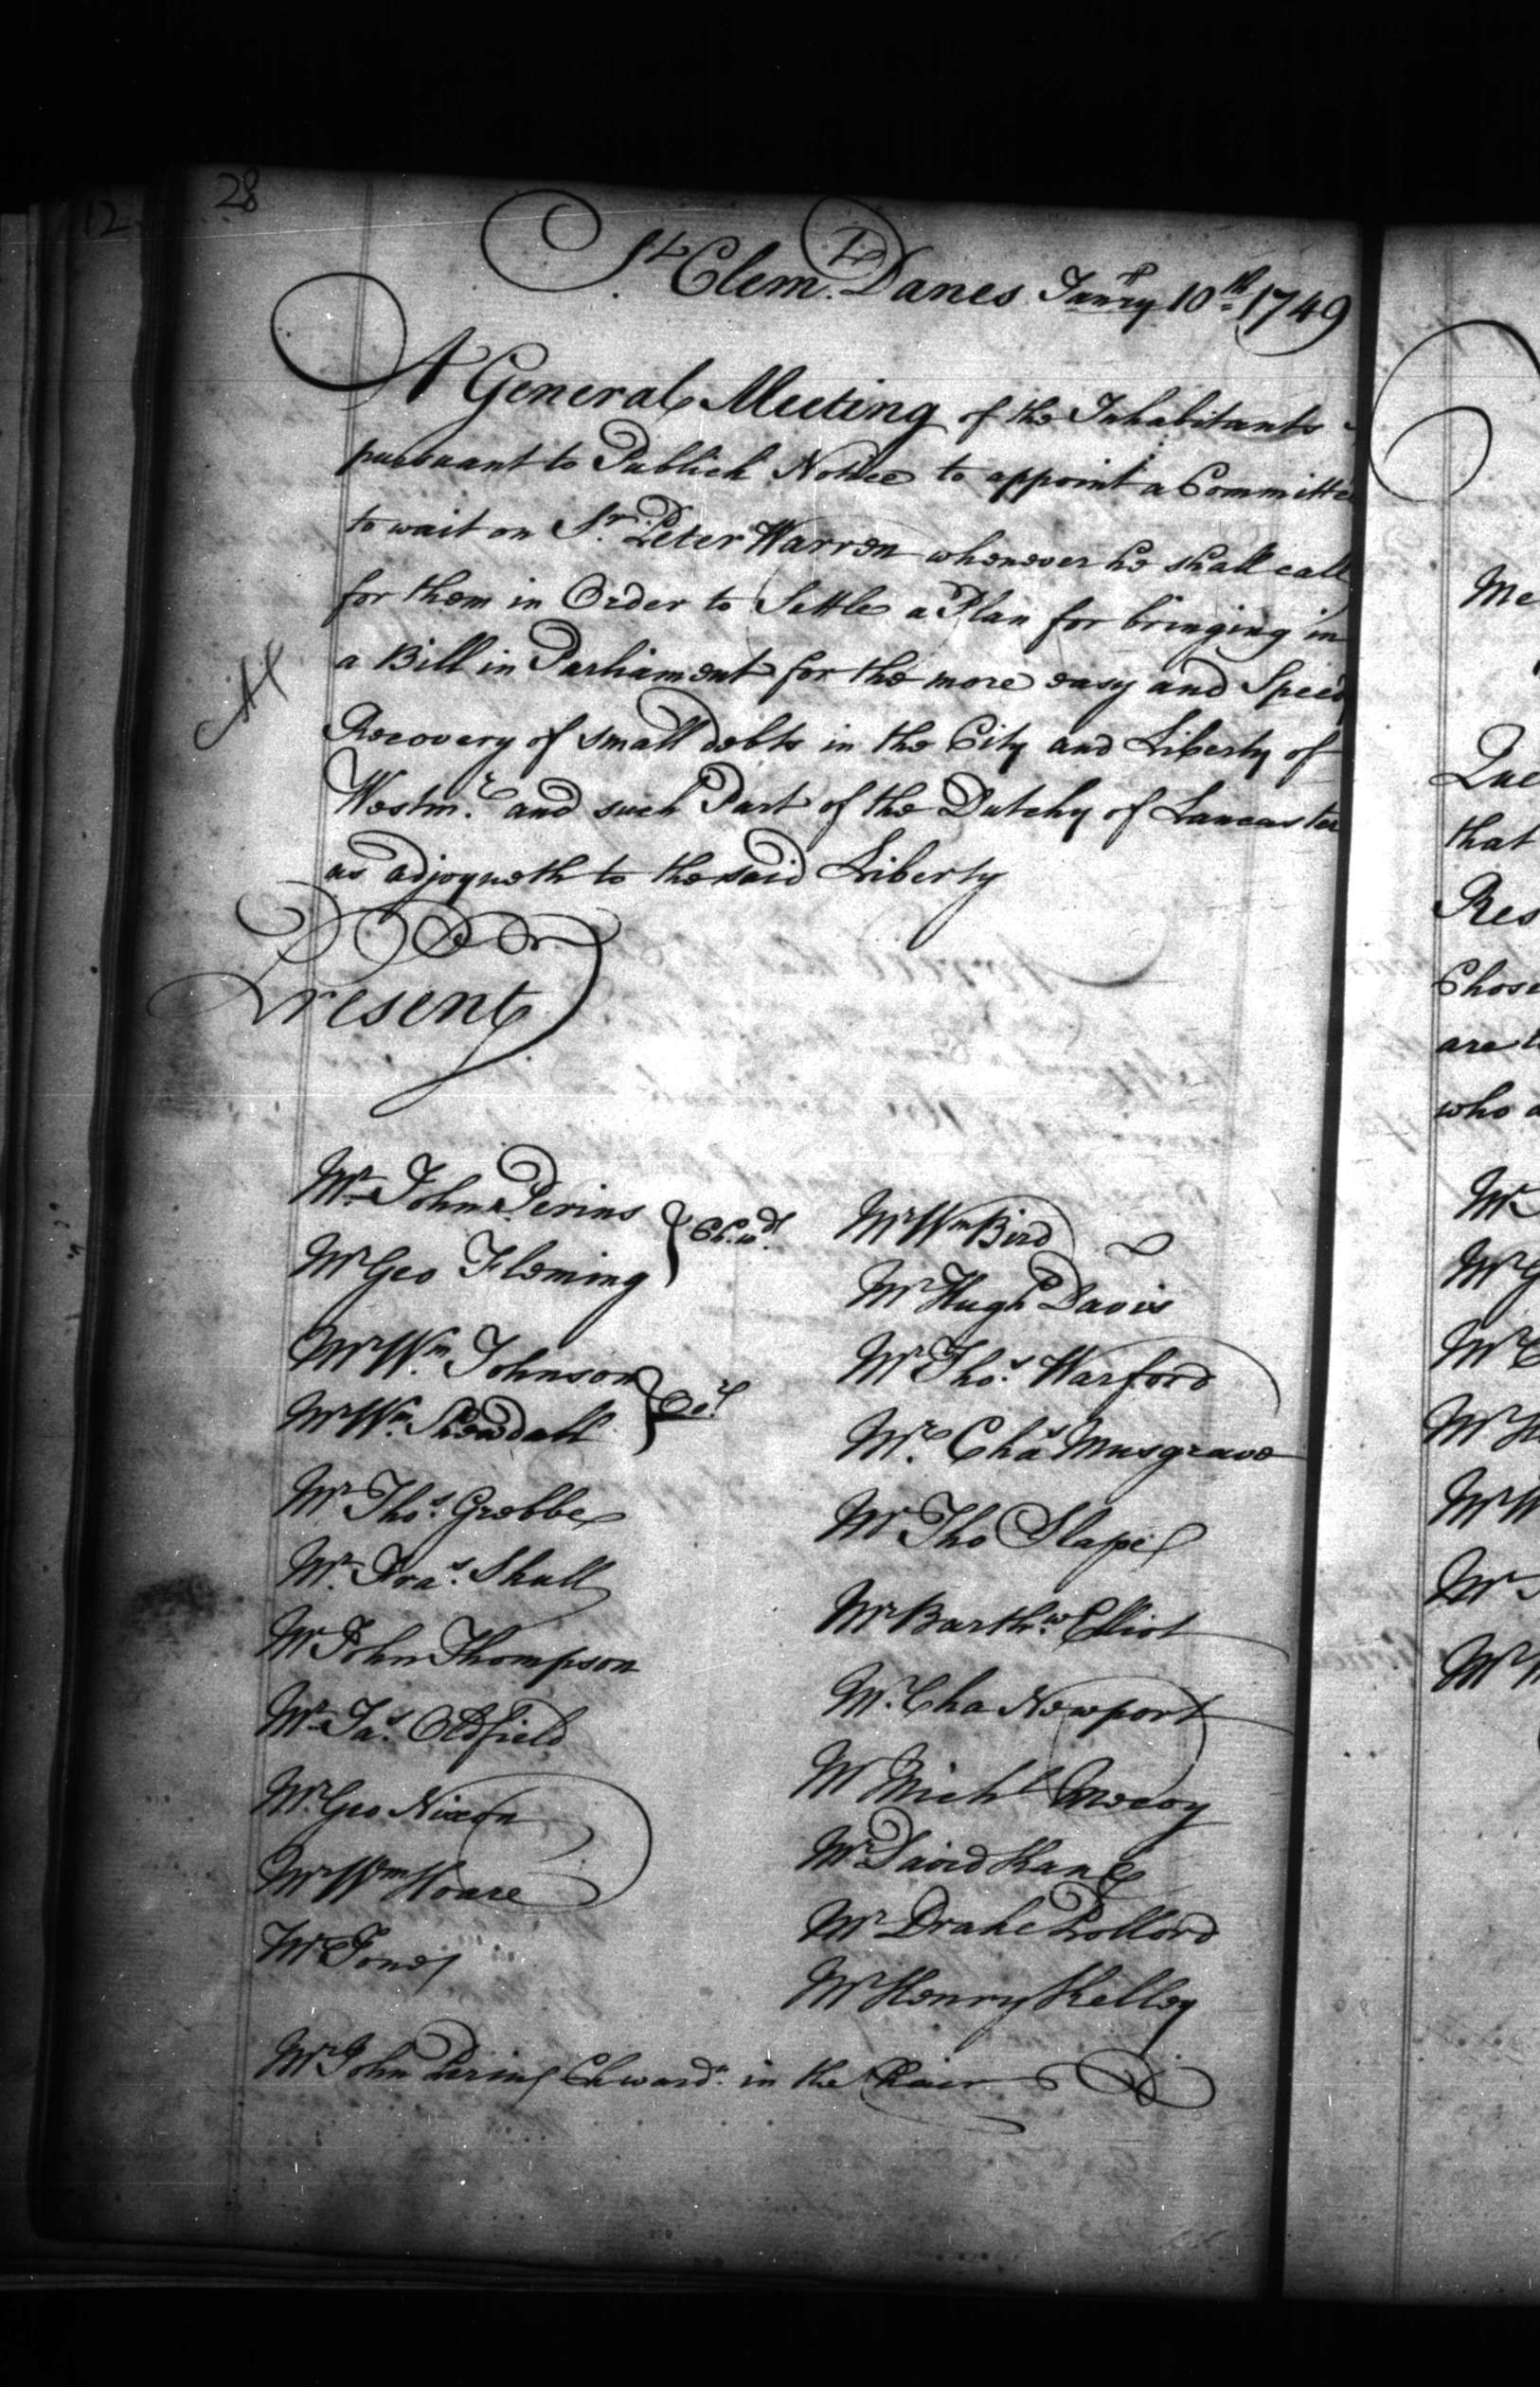 28
12
St. Clem.t Danes Janry 10th. 1749
A General Meeting of the Inhabitants
pursuant to Publick Notice to appoint a Committee
to wait on Sr. Peter Warren whenever he shall call
for them in Order to Settle a Plan for bringing in
a Bill in Parliament for the more easy and Speedy
Recovery of small debts in the City and Liberty of
Westmr. and such Part of the Dutchy of Lancaster
as adjoyneth to the said Liberty
Present
Mr. John Perins
Mr Geo Fleming
Ch.wds.
Mr Wm. Johnson
Mr Wm. Shewdall
Mr Thos. Grebbe
Mr. Fras. Shall
Mr John Thompson
Mr Jas. Oldfield
Mr. Geo Nixon
Mr Wm Hoare
Mr Jones
Mr Wm Bird
Mr Hugh Davis
Mr Thos. Warford
Mr. Chas Musgrave
Mr Tho Slape
Mr Barthw. Elliot
Mr. Cha Newport
Mr Michl Mecoy
Mr David Kane
Mr Drake Pollord
Mr Henry Kelley
Mr John Perins Chwardn. in the Chair
Me
that
Res
Chose
are
who
Mr
Mr
Mr
Mr
Mr
Mr
Mr